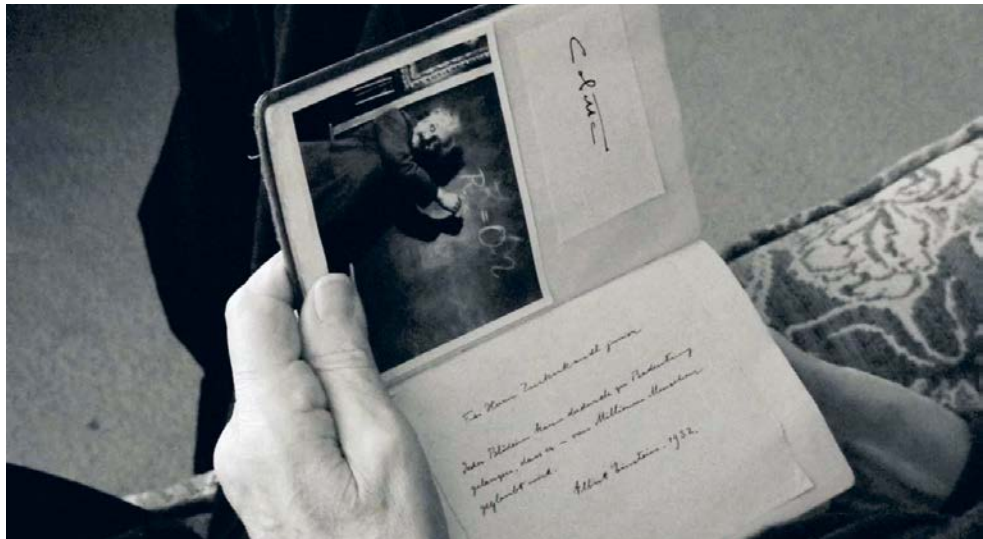 R = 0?
Für Herrn Zuckerkandl junior
Jeder Blödsinn kann dadurch zu Bedeutung
gelangen, dass er – von Millionen Menschen
geglaubt wird.
Albert Einstein. 1932.